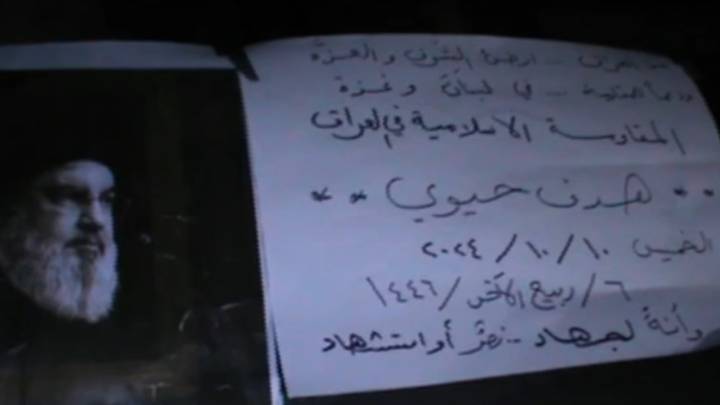 العراق .. ارض الشرف والعزة
المقاومة .. في لبنان وغزة
المقاومة الاسلامية في العراق
** هدف حيوي **
الخميس ١٠/١٠/٢٠٢٤
٦/ربيع الآخر/١٤٤٦
وأنهُ لجهاد .. نصرٌ أو استشهاد